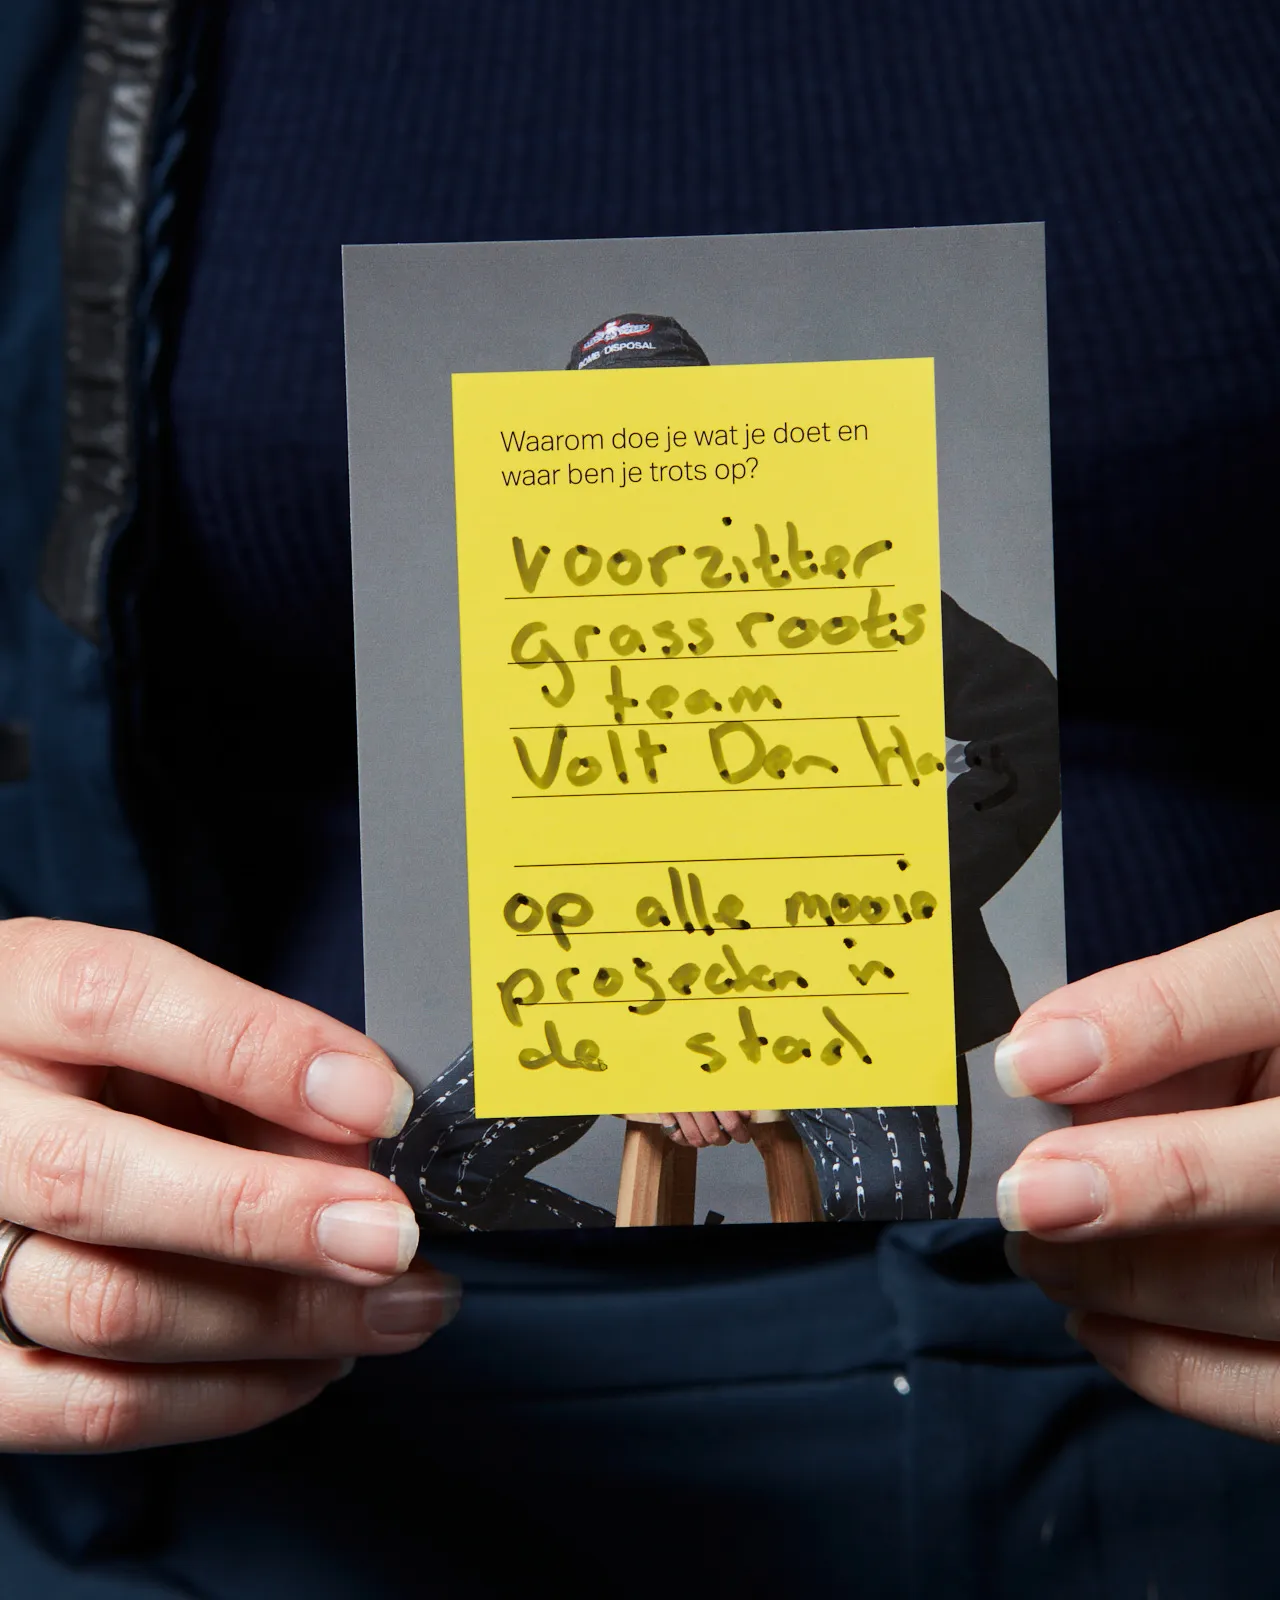 BOMB DISPOSAL
Waarom doe je wat je doet en
waar ben je trots op?
voorzitter
grass roots
team
Volt Den Haag
op alle mooie
projecten in
de stad